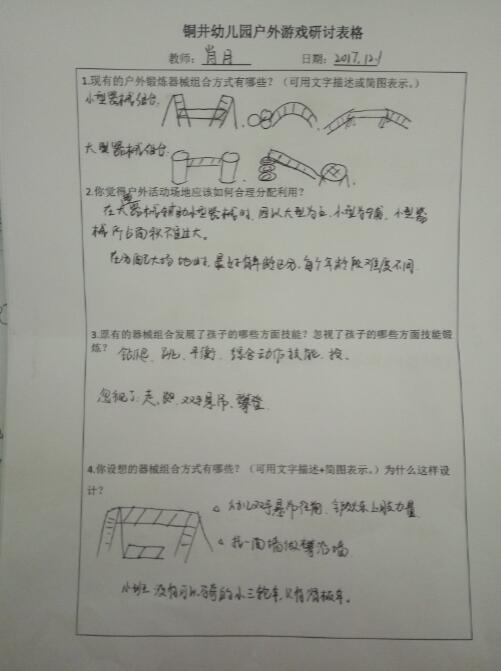 铜井幼儿园户外游戏研讨表格
教师：肖月 日期：2017.12.1
1.现有的户外锻炼器械组合方式有哪些？（可用文字描述或简图表示。）
小型器械组合：
大型器械组合：
2.你觉得户外活动场地应该如何合理分配利用？
在大型器械辅助小型器械时，因以大型为主，小型为辅，小型器
械所占面积不宜过大。
在分配大场地时，最好有年龄区分，每个年龄段难度不同
3.原有的器械组合发展了孩子的哪些方面技能？忽视了孩子的哪些方面技能锻
炼？ 钻爬、跳、平衡、综合动作技能、投、
忽视了：走、跑、双手悬吊、攀登
4.你设想的器械组合方式有哪些？（可用文字描述+简图表示。）为什么这样设
计？
双手悬吊 上肢力量
找一面墙做攀沿墙
小班没有可以骑的小三轮车，只有滑板车。